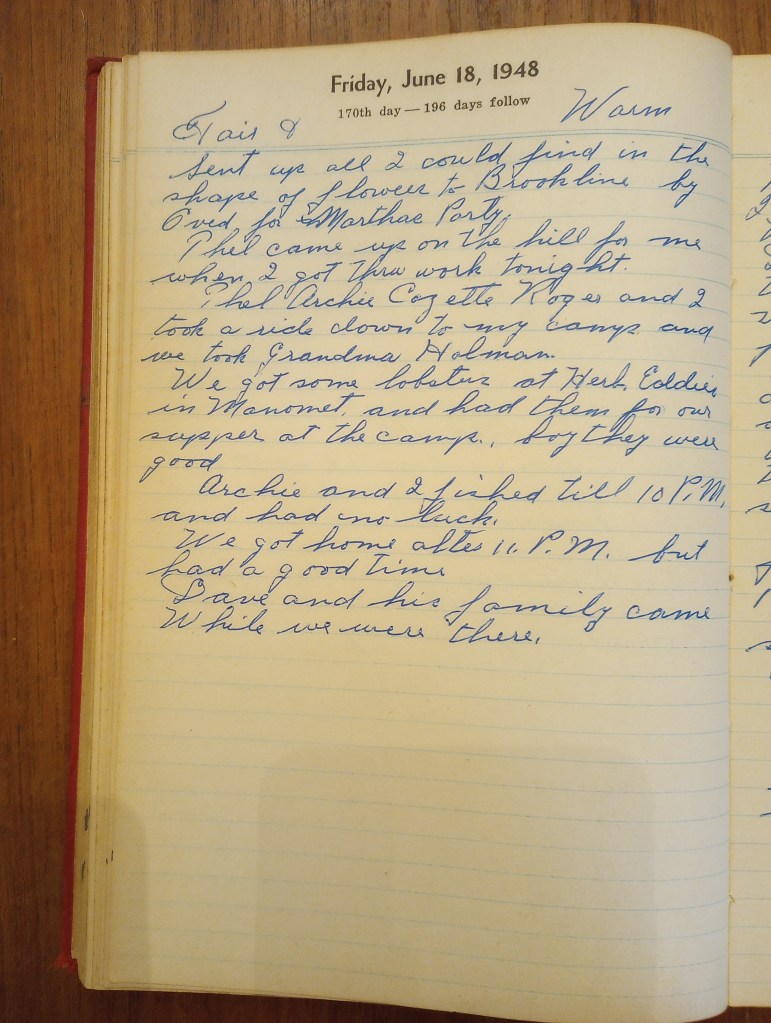 Friday, June 18, 1948
170th day — 196 days follow
Fair & Warm
Sent up all I could find in the
shape of flowers to Brookline by
Oved for Marthas Party.
Phel came up on the hill for me
when I got thru work tonight.
Phel Archie Cozette Roger and I
took a ride down to my camp and
we took Grandma Holman.
We got some lobsters at Herb. Eddies
in Manomet. and had them for our
supper at the camp., boy they were
good
Archie and I fished till 10 P.M.
and had no luck.
We got home after 11. P.M. but
had a good time
Dave and his family came
While we were there.